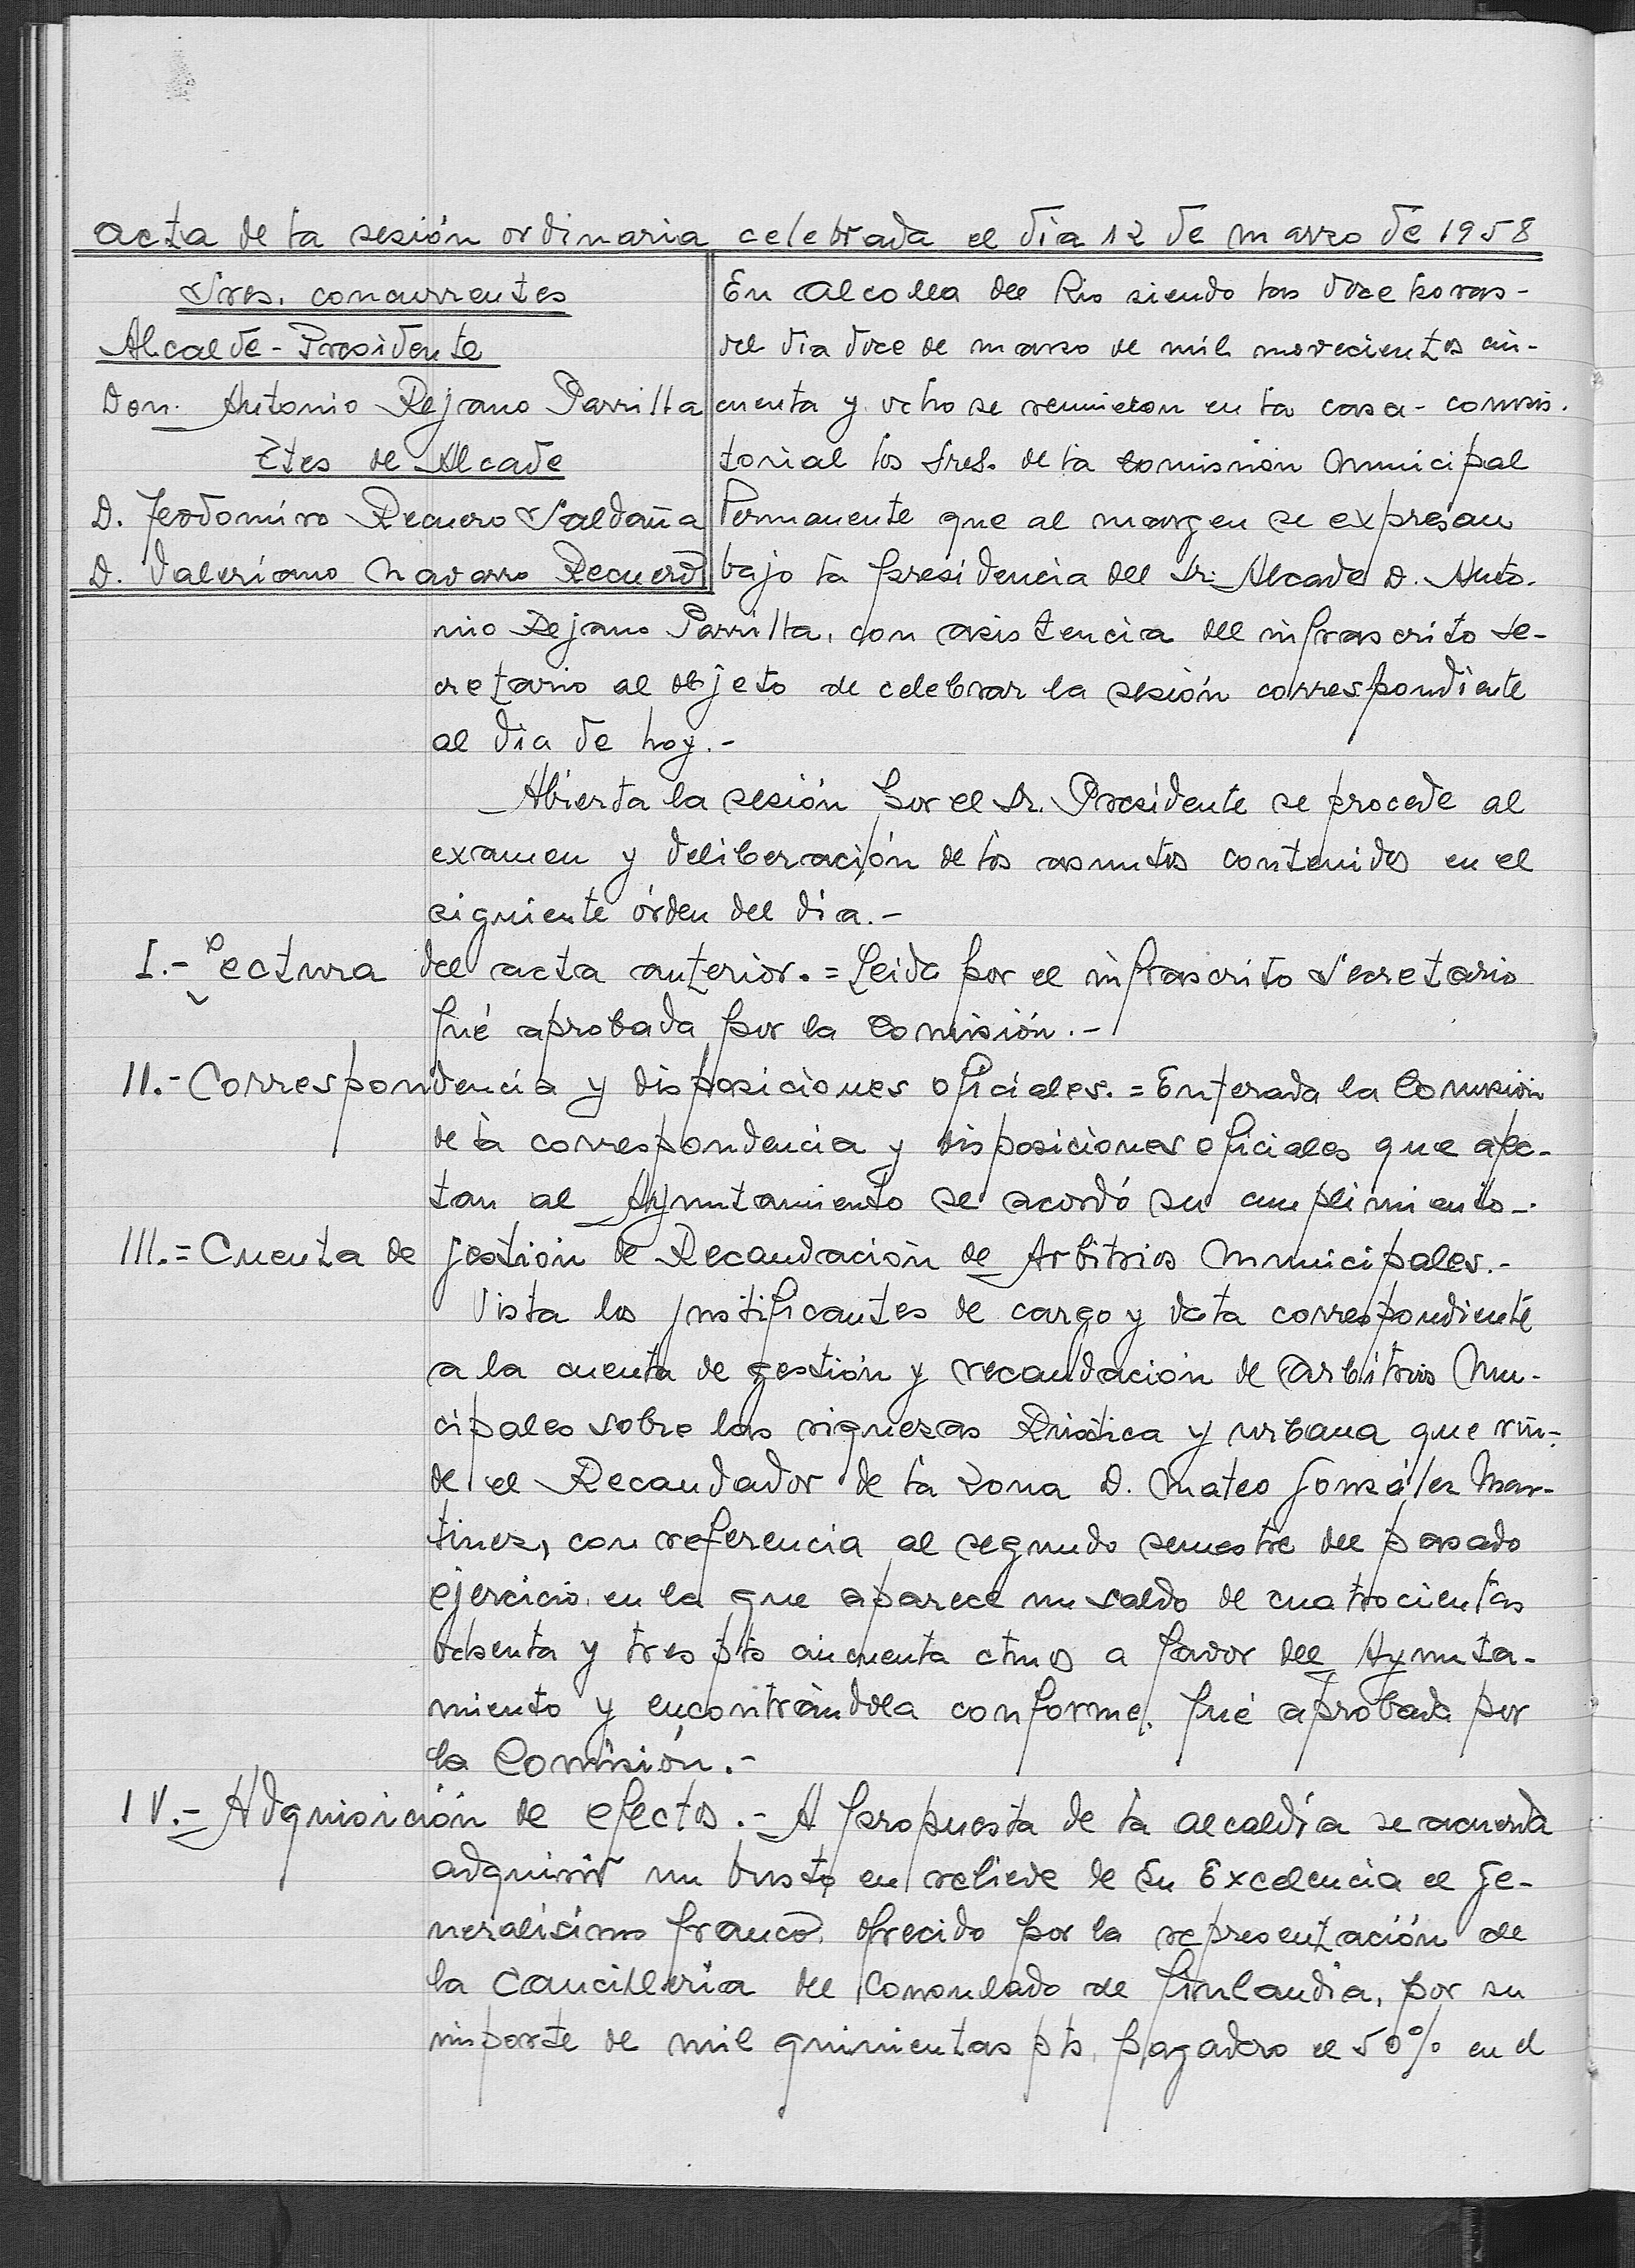 Acta de la sesión ordinaria celebrada el dia 12 de marzo de 1958
Sres. concurrentes
Alcalde-Presidente
Don Antonio Rejano Parrilla
Ttes de Alcade
D. Teodomiro Recuero Saldaña
D. Valeriano Navarro Recuero
En Alcolea del Rio siendo las doce horas-
del dia doce de marzo de mil novecientos cin-
cuenta y ocho se reunieron en la casa-consis-
torial los Sres. de la Comisnion Municipal
Permanente que al margen se expresan
bajo la presidencia del Sr. Alcade D. Anto-
nio Rejano Parrilla, con asistencia del infrascrito Se-
cretario al objeto de celebrar la sesión correspondiente
al dia de hoy.-
Abierta la sesión por el Sr. Presidente se procede al
examen y deliberación de los asuntos contenidos en el
siguiente órden del dia.-
I.- Lectura del acta anterior.= Leida por el infrascrito Secretario
fué aprobada por la Comisión.-
II.- Correspondencia y disposiciones oficiales.= Enterada la Comisión
de la correspondencia y disposiciones oficiales que afec-
tan al Ayuntamiento se acordó su cumplimiento-.
III.= Cuenta de gestión de Recaudación de Arbitrios Municipales.-
Vista los justificantes de cargo y data correspondiente
a la cuenta de gestión y recaudación de Arbitrios Mu-
cipales sobre las riquezas Rústica y urbana que rin-
de el Recaudador de la Zona D. Mateo González Mar-
tinez, con referencia al segundo semestre del pasado
ejercicio, en la que aparece un saldo de cuatrocientas
ochenta y tres pts cincuenta ctmos a favor del Ayunta-
miento y encontrándola conforme, fué aprobada por
la Comisión.-
IV.- Adquisición de efectos.- A propuesta de la alcaldía se acuerda
adquirir un busto en relieve de Su Excelencia el Ge-
neralísimo Franco, ofrecido por la representación de
la Cancilleria del Consulado de Finlandia, por su
importe de mil quinientas pts, pagadero el 50% en el